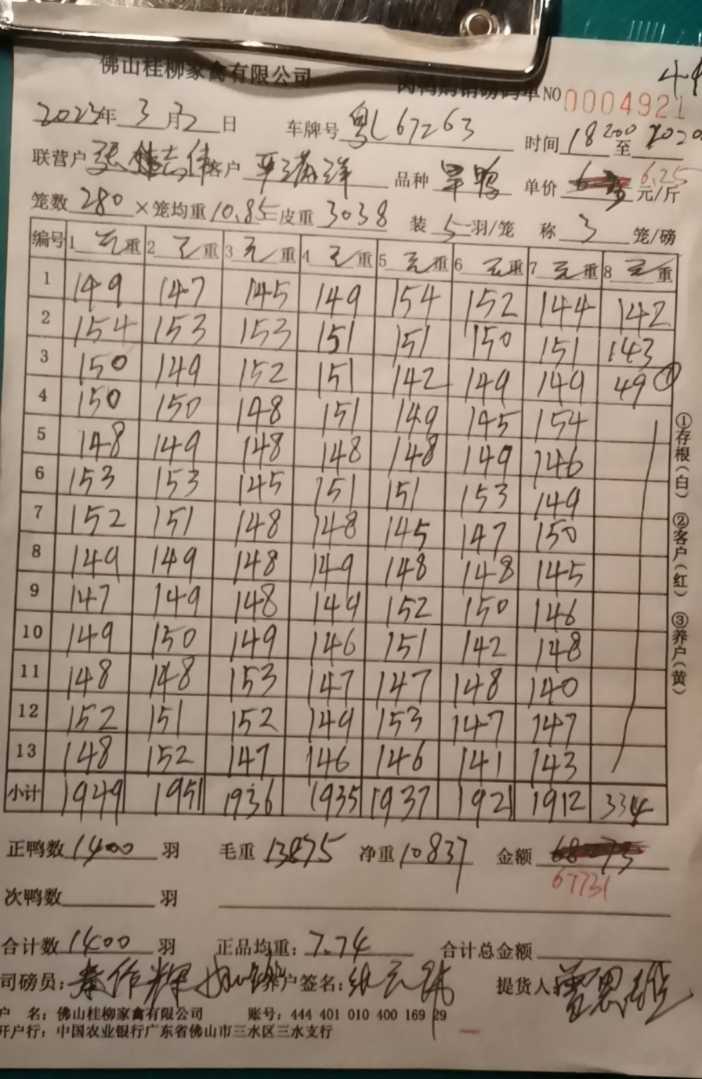 佛山桂柳家禽有限公司 NO 0004921
2023年 3 月 2 日 车牌号 粤L67263 时间 18 200 至 2020
联营户 客户 平满洋 品种 旱鸭 单价 6.25 元/斤
笼数 280 ×笼均重 10.85 皮重 3038 装 5 羽/笼 称 3 笼/磅
编号 1 毛重 2 毛重 3 毛重 4 毛重 5 毛重 6 毛重 7 毛重 8 毛重
1 149 147 145 149 154 152 144 142
2 154 153 153 151 151 150 151 143
3 150 149 152 151 142 149 149 49 ①
4 150 150 148 151 149 145 154
5 148 149 148 148 148 149 146
6 153 153 145 151 151 153 149
7 152 151 148 148 145 147 150
8 149 149 148 149 148 148 145
9 147 149 148 149 152 150 146
10 149 150 149 146 151 142 148
11 148 148 153 147 147 148 140
12 152 151 152 149 153 147 147
13 148 152 147 146 146 141 143
小计 1949 1951 1936 1935 1937 1921 1912 334
①存根(白) ②客户(红) ③养户(黄)
正鸭数 1400 羽 毛重 13875 净重 10837 金额 67731
次鸭数 羽
合计数 1400 羽 正品均重: 7.74 合计总金额
司磅员: 户签名: 提货人
户 名: 佛山桂柳家禽有限公司 账号: 444 401 010 400 169 29
开户行: 中国农业银行广东省佛山市三水区三水支行